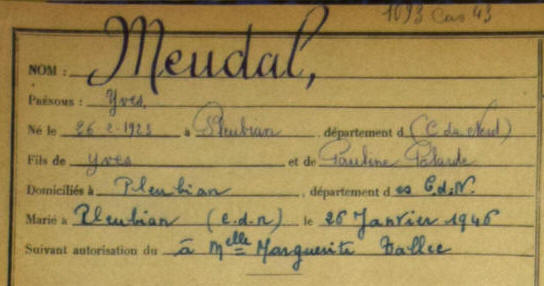 1693 Cas 43
NOM : Meudal,
PRÉNOMS : Yves,
Né le 26-2-1923 à Pleubian, département d (C. du Nord)
Fils de Yves et de Pauline
Domiciliés à Pleubian, département d es C.d.N.
Marié à Pleubian (C.d.N) le 26 Janvier 1946
Suivant autorisation du à Melle Marguerite Tallec